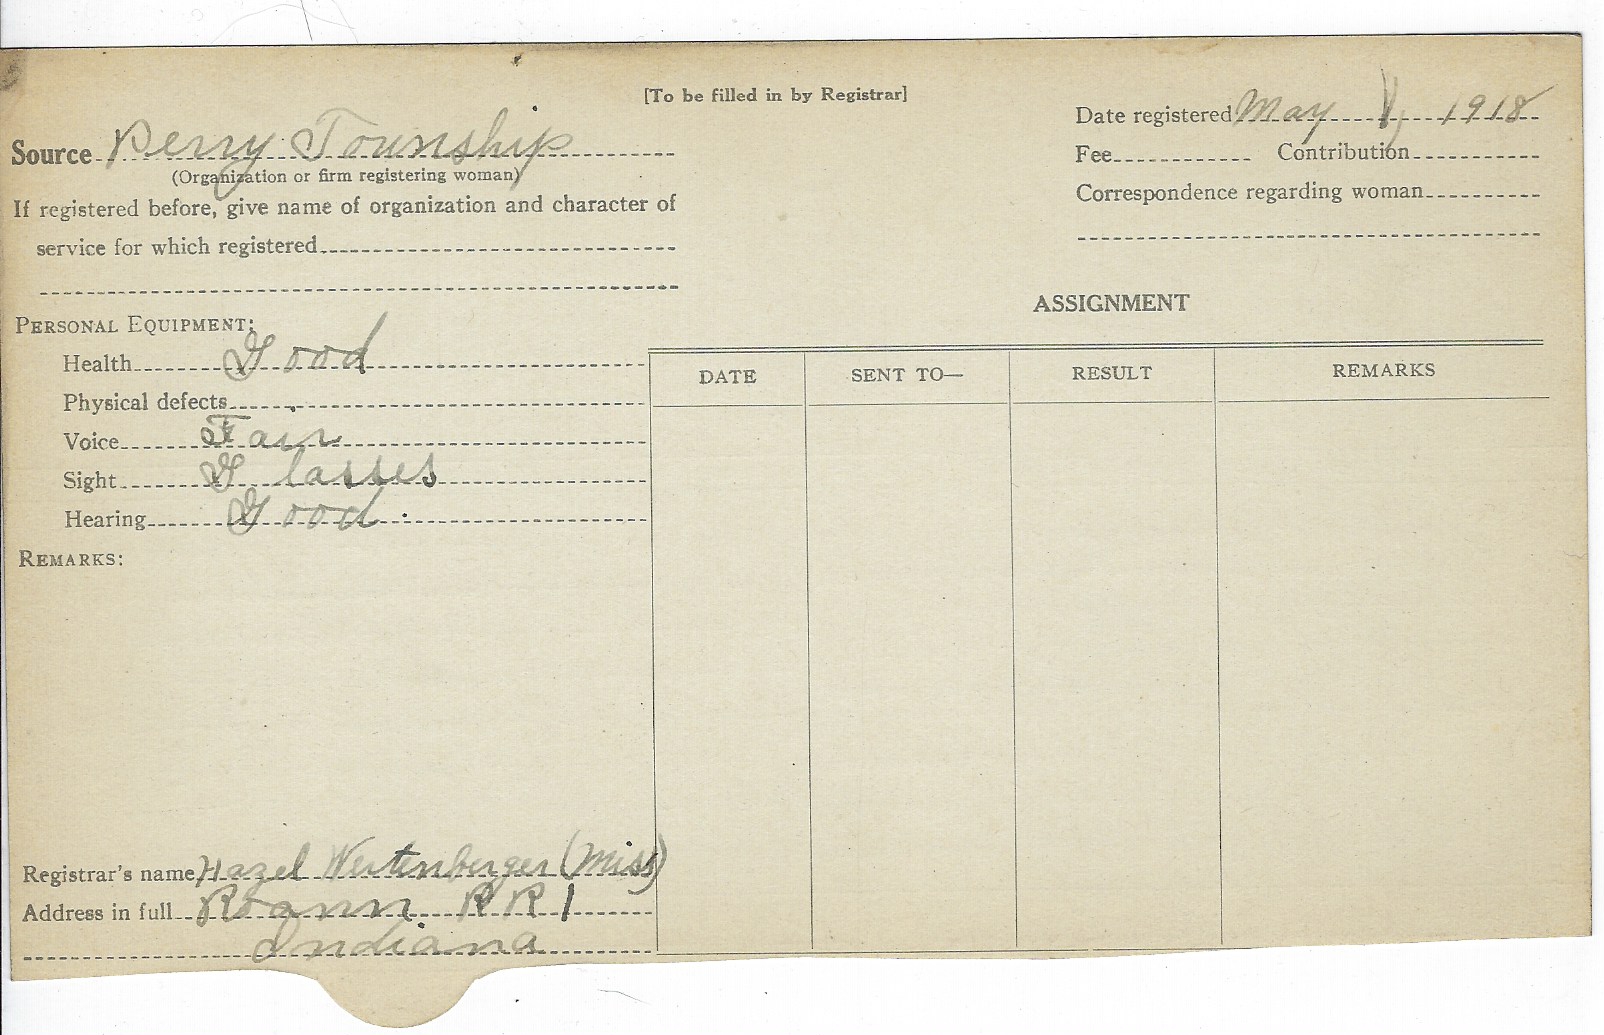 [To be filled in by Registrar]
Source Perry Township
(Organization or firm registering woman)
If registered before, give name of organization and character of
service for which registered
Date registered May 1, 1918
Fee Contribution
Correspondence regarding woman
PERSONAL EQUIPMENT:
Health Good
Physical defects
Voice Fair
Sight Glasses
Hearing Good
REMARKS:
ASSIGNMENT
DATE SENT TO— RESULT REMARKS
Registrar's name Hazel Wertenberger (Miss)
Address in full Roann RR 1
Indiana